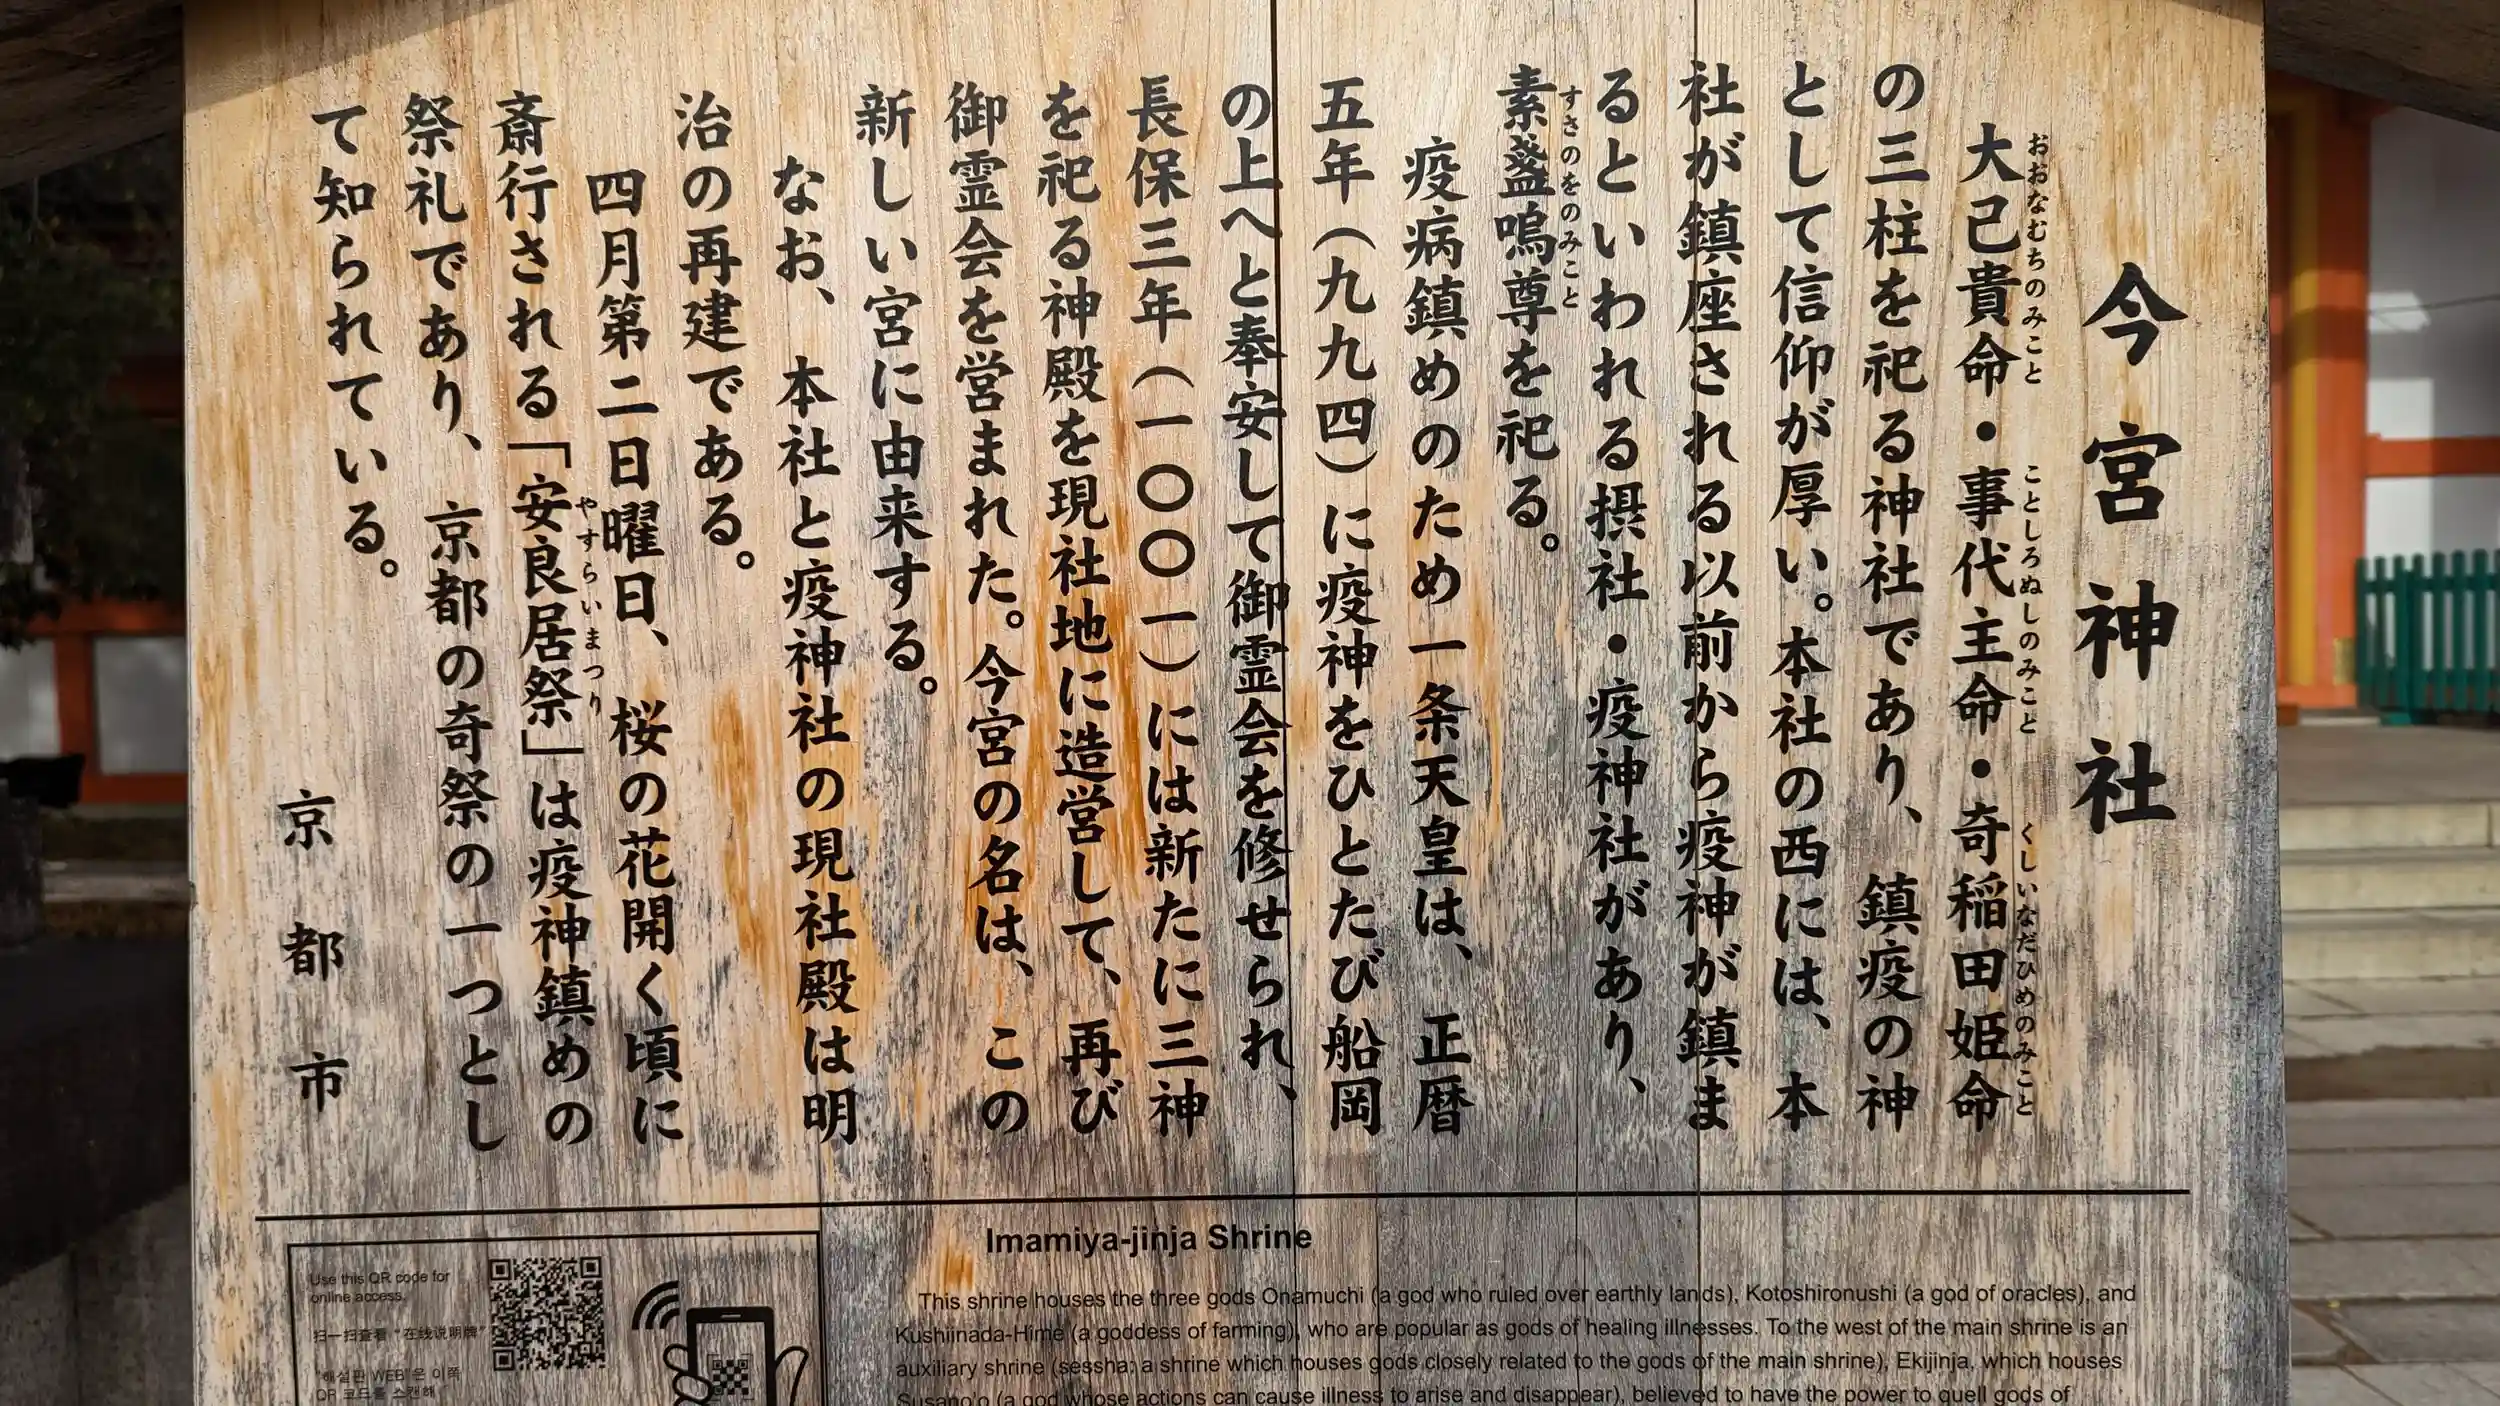 今宮神社
大己貴命・事代主命・奇稲田姫命
おおなむちのみこと ことしろぬしのみこと くしいなだひめのみこと
の三柱を祀る神社であり、鎮疫の神
として信仰が厚い。本社の西には、本
社が鎮座される以前から疫神が鎮ま
るといわれる摂社・疫神社があり、
素盞嗚尊を祀る。
すさのをのみこと
疫病鎮めのため一条天皇は、正暦
五年(九九四)に疫神をひとたび船岡
の上へと奉安して御霊会を修せられ、
長保三年(一〇〇一)には新たに三神
を祀る神殿を現社地に造営して、再び
御霊会を営まれた。今宮の名は、この
新しい宮に由来する。
なお、本社と疫神社の現社殿は明
治の再建である。
四月第二日曜日、桜の花開く頃に
斎行される「安良居祭」は疫神鎮めの
やすらいまつり
祭礼であり、京都の奇祭の一つとし
て知られている。
京都市
Use this QR code for
online access.
扫一扫查看“在线说明牌”
"해설판 WEB"은 이쪽
QR 코드를 스캔해
Imamiya-jinja Shrine
This shrine houses the three gods Onamuchi (a god who ruled over earthly lands), Kotoshironushi (a god of oracles), and
Kushiinada-Hime (a goddess of farming), who are popular as gods of healing illnesses. To the west of the main shrine is an
auxiliary shrine (sessha: a shrine which houses gods closely related to the gods of the main shrine), Ekijinja, which houses
Susano'o (a god whose actions can cause illness to arise and disappear), believed to have the power to quell gods of